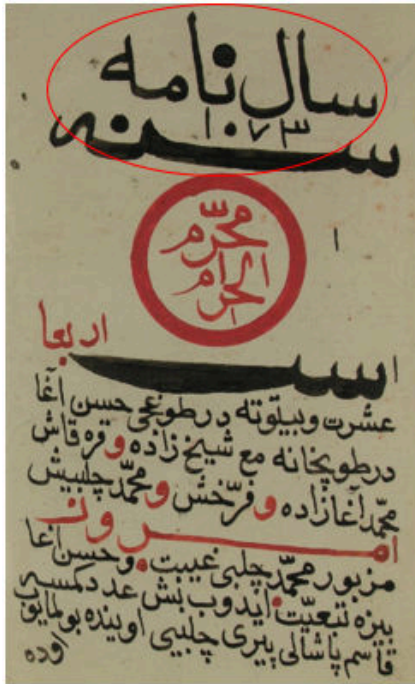 سال نامه
سنه ١٠٧٣
١
محرّم
الحرام
اربعا
١
عشرت و بیتوته در طوغجی حسن آغا
در طوپخانه مع شیخ زاده و قره قاش
محمّد آغازاده و فرّخش و محمّد چلبیش
امروز
مزبور محمّد چلبی غیبت و حسن آغا
بیزه تبعیّت ایدوب بش عدد کمسه
قاسم پاشالی پیری چلبیی اوینده بولمایوب